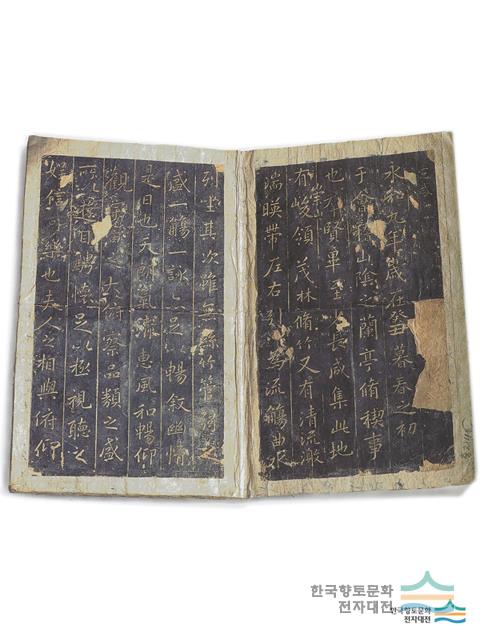 永和九年歲在癸丑暮春之初
于會稽山陰之蘭亭脩稧事
也群賢畢至少長咸集此地
有峻領茂林脩竹又有清流激
崇山
湍暎帶左右引以為流觴曲水
列坐其次雖無絲竹管弦之
盛一觴一詠亦足以暢敘幽情
是日也天朗氣清惠風和暢仰
觀 大俯察品類之盛
所以遊目騁懷足以極視聽之
娛信可樂也夫人之相與俯仰
한국향토문화
전자대전
한국향토문화
전자대전